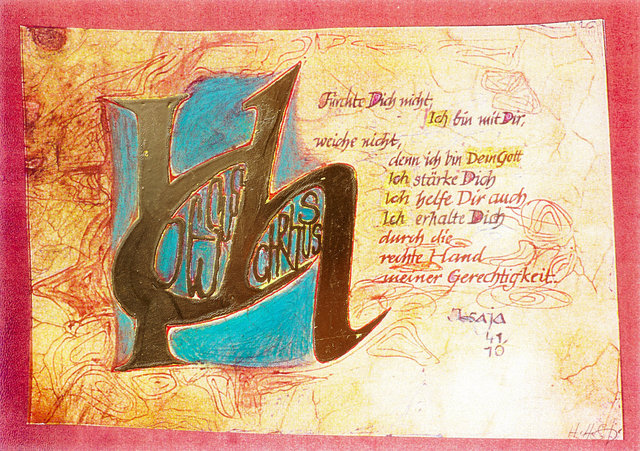 Ich
JESUS
CHRISTUS
Fürchte Dich nicht,
Ich bin mit Dir,
weiche nicht,
denn ich bin Dein Gott
Ich stärke Dich
Ich helfe Dir auch,
Ich erhalte Dich
durch die
rechte Hand
meiner Gerechtigkeit.
Jesaja
41,
10